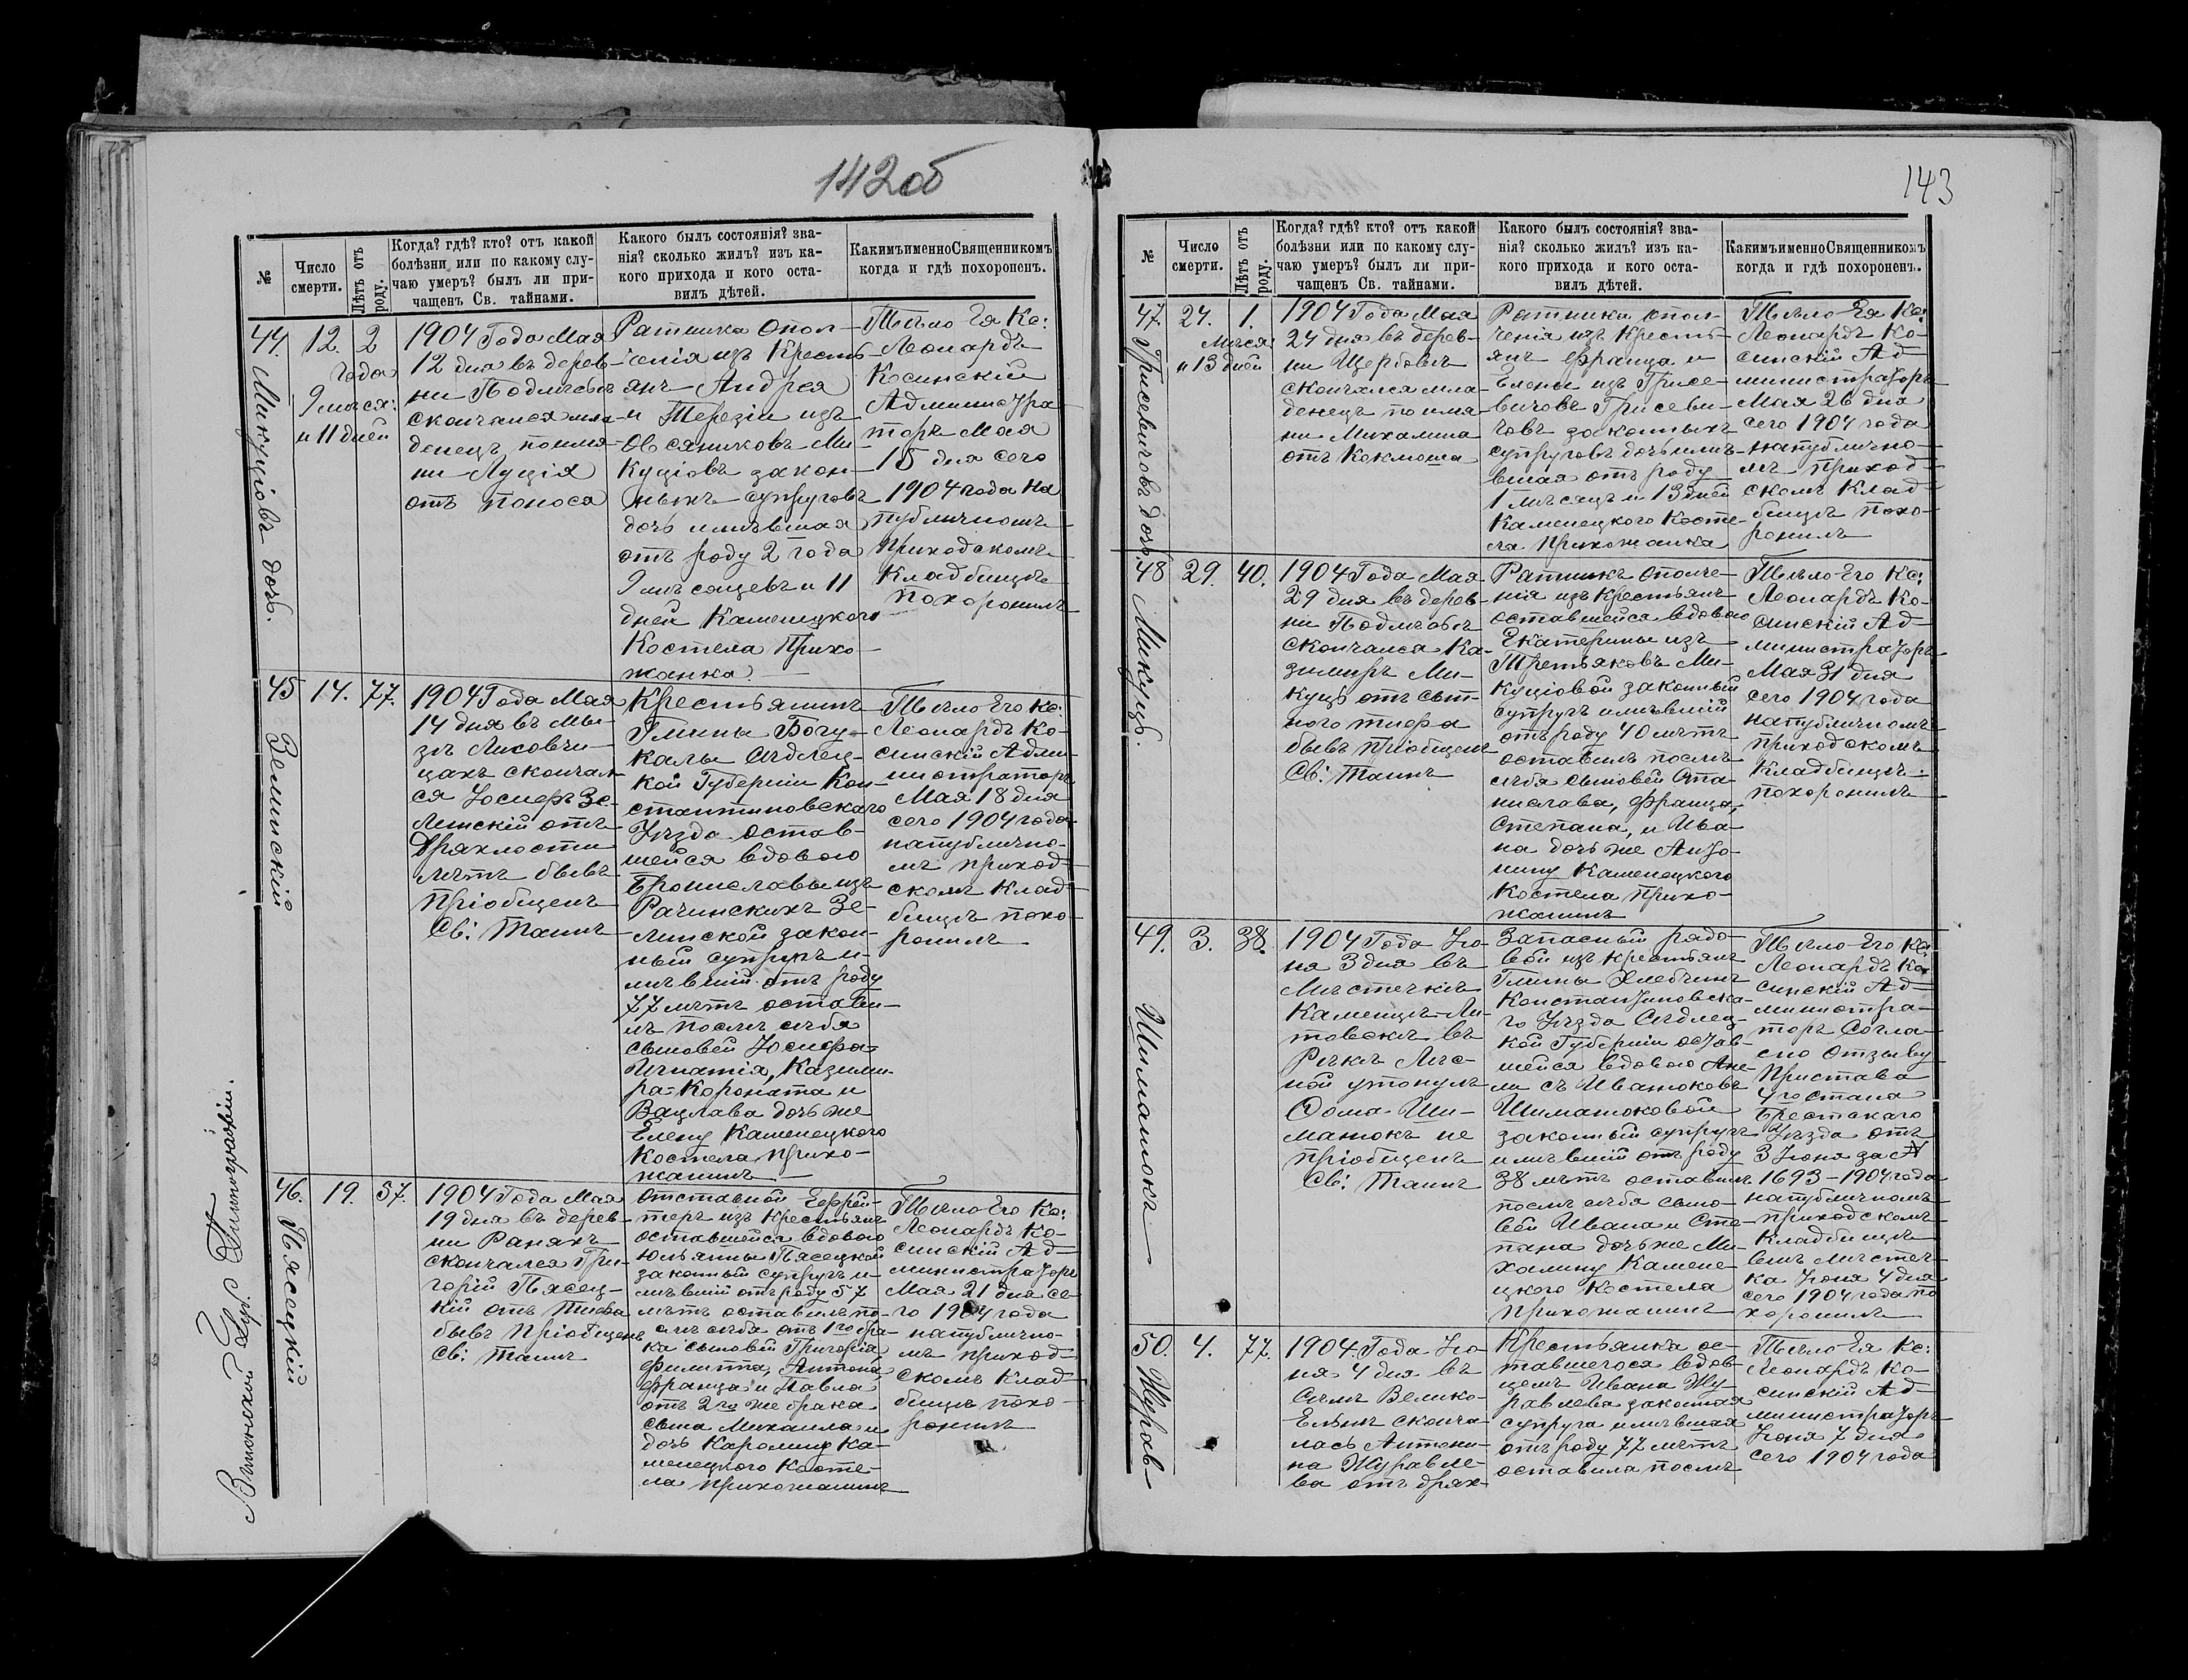 142об
№
Число
смерти.
Лѣтъ отъ
роду.
Когда? гдѣ? кто? отъ какой
болѣзни или по какому слу-
чаю умеръ? былъ ли при-
чащенъ Св. тайнами.
Какого былъ состоянія? зва-
нія? сколько жилъ? изъ ка-
кого прихода и кого оста-
вилъ дѣтей.
Какимъ именно Священникомъ
когда и гдѣ похороненъ.
44.
Микуціовъ дочь.
12.
2
года
9 мѣся:
и 11 дней
1904 Года Мая
12 дня въ дерев-
ни Подлѣсьѣ
скончался мла-
денецъ по име-
ни Луція
отъ поноса
Ратника Опол-
ченія изъ Кресть-
янъ Андрея
и Терезіи изъ
Овсяниковъ Ми-
куціовъ закон-
ныхъ супруговъ
дочь имѣвшая
отъ роду 2 года
9 мѣсяцевъ и 11
дней Каменецкого
Костела Прихо-
жанка
Тѣло Ея Кс:
Леонардъ
Косинскій
Администра
торъ Мая
15 дня сего
1904 года на
публичномъ
приходскомъ
Кладбищѣ
похоронилъ
45
Зелинскій
14.
77.
1904 Года Мая
14 дня въ Мы-
зѣ Лисовчи-
цахъ скончал-
ся Іосифъ Зе-
линскій отъ
Дряхлости
лѣтъ бывъ
пріобщенъ
Св: Таинъ
Крестьянинъ
Гмины Богу-
калы Сѣдлец-
кой Губерніи Кон-
стантиновскаго
Уѣзда остав-
шейся вдовою
Брониславы изъ
Рачинскихъ Зе-
линской закон-
ный супругъ и-
мѣвшій отъ роду
77 лѣтъ остави-
лъ послѣ себя
сыновей Іосифа
Игнатія, Казими-
ра-Короната и
Вацлава дочь же
Елену Каменецкого
Костела прихо-
жанинъ
Тѣло Его Кс:
Леонардъ Ко-
синскій Адми-
нистраторъ
Мая 18 дня
сего 1904 года
на публично-
мъ приход-
скомъ Клад-
бищѣ похо-
ронилъ
46.
Пясецкій
19.
57.
1904 Года Мая
19 дня въ дерев-
ни Раняхъ
скончался Гри-
горій Пясец-
кій отъ Тифа
бывъ Пріобщенъ
Св: Таинъ
Отставной Ефрей-
теръ изъ Крестьянъ
оставшейся вдовою
Юльянны Пясецкой
законный супругъ и-
мѣвшій отъ роду 57
лѣтъ оставилъ по-
слѣ себя отъ 1го бра-
ка сыновей Григорія,
Филиппа, Антона,
Франца и Павла
отъ 2го же брака
сына Михаила и
дочь Каролину Ка-
менецкого Косте-
ла прихожанинъ
Тѣло Его Кс:
Леонардъ Ко-
синскій Ад-
министраторъ
Мая 21 дня се-
го 1904 года
на публично-
мъ приход-
скомъ Клад-
бищѣ похо-
ронилъ
143
№
Число
смерти.
Лѣтъ отъ
роду.
Когда? гдѣ? кто? отъ какой
болѣзни или по какому слу-
чаю умеръ? былъ ли при-
чащенъ Св. тайнами.
Какого былъ состоянія? зва-
нія? сколько жилъ? изъ ка-
кого прихода и кого оста-
вилъ дѣтей.
Какимъ именно Священникомъ
когда и гдѣ похороненъ.
47.
Грисевичовъ дочь.
24.
1.
Мѣсяц
и 13 дней
1904 Года Мая
24 дня въ дерев-
ни Щербовъ
скончался мла-
денецъ по име-
ни Михалина
отъ Коклюша
Ратника опол-
ченія изъ Кресть-
янъ Франца и
Елены изъ Грисе-
вичовъ Грисеви-
човъ законныхъ
супруговъ дочь имѣ-
вшая отъ роду
1 мѣсяцъ и 13 дней
Каменецкого Косте-
ла Прихожанка
Тѣло Ея Кс:
Леонардъ Ко-
синскій Ад-
министраторъ
Мая 26 дня
сего 1904 года
на публично-
мъ приход-
скомъ Клад-
бищѣ похо-
ронилъ
48
Микуць.
29.
40.
1904 Года Мая
29 дня въ дерев-
ни Подлѣсьѣ
скончался Ка-
зимиръ Ми-
куць отъ сып-
ного тифа
бывъ пріобщенъ
Св: Таинъ
Ратникъ Ополче-
нія изъ Крестьянъ
оставшейся вдовою
Екатерины изъ
Третьяковъ Ми-
куціовой законный
супругъ имѣвшій
отъ роду 40 лѣтъ
оставилъ послѣ
себя сыновей Ста-
нислава, Франца,
Степана, и Ива-
на дочь же Анто-
нину Каменецкого
Костела прихо-
жанинъ
Тѣло Его Кс:
Леонардъ Ко-
синскій Ад-
министраторъ
Мая 31 дня
сего 1904 года
на публичномъ
приходскомъ
Кладбищѣ
похоронилъ
49.
Шиманюкъ
3.
38.
1904 Года Ію-
ня 3 дня въ
Мѣстечкѣ
Каменцѣ-Ли-
товскѣ въ
Рѣкѣ Лѣс-
ной утонулъ
Ѳома Ши-
манюкъ не
пріобщенъ
Св: Таинъ
Запасный рядо-
вой изъ крестьянъ
Гмины Хлебчинъ
Константиновска-
го Уѣзда Сѣдлец-
кой Губерніи остав-
шейся вдовою Ане-
ли съ Иванюковъ
Шиманюковой
законный супругъ
имѣвшій отъ роду
38 лѣтъ оставилъ
послѣ себя сыно-
вей Ивана и Сте-
пана дочь же Ми-
халину Камене-
цкого Костела
Прихожанинъ
Тѣло Его Кс:
Леонардъ Ко-
синскій Ад-
министра-
торъ Согла-
сно отзыву
Пристава
4го стана
Брестскаго
Уѣзда отъ
3 Іюня за №
1693-1904 года
на публичномъ
приходскомъ
Кладбищѣ
вмъ мѣстеч-
ка Іюня 4 дня
сего 1904 года по
хоронилъ
50.
Журав
4.
77.
1904. Года Ію-
ня 4 дня въ
Селѣ Велико-
Ельнѣ сконча-
лась Антони-
на Журавле-
ва отъ дрях-
Крестьянка ос-
тавшегося вдов-
цемъ Ивана Жу-
равлева законная
супруга имѣвшая
отъ роду 77 лѣтъ
оставила послѣ
Тѣло Ея Кс:
Леонардъ Ко-
синскій Ад-
министраторъ
Іюня 7 дня
сего 1904 года